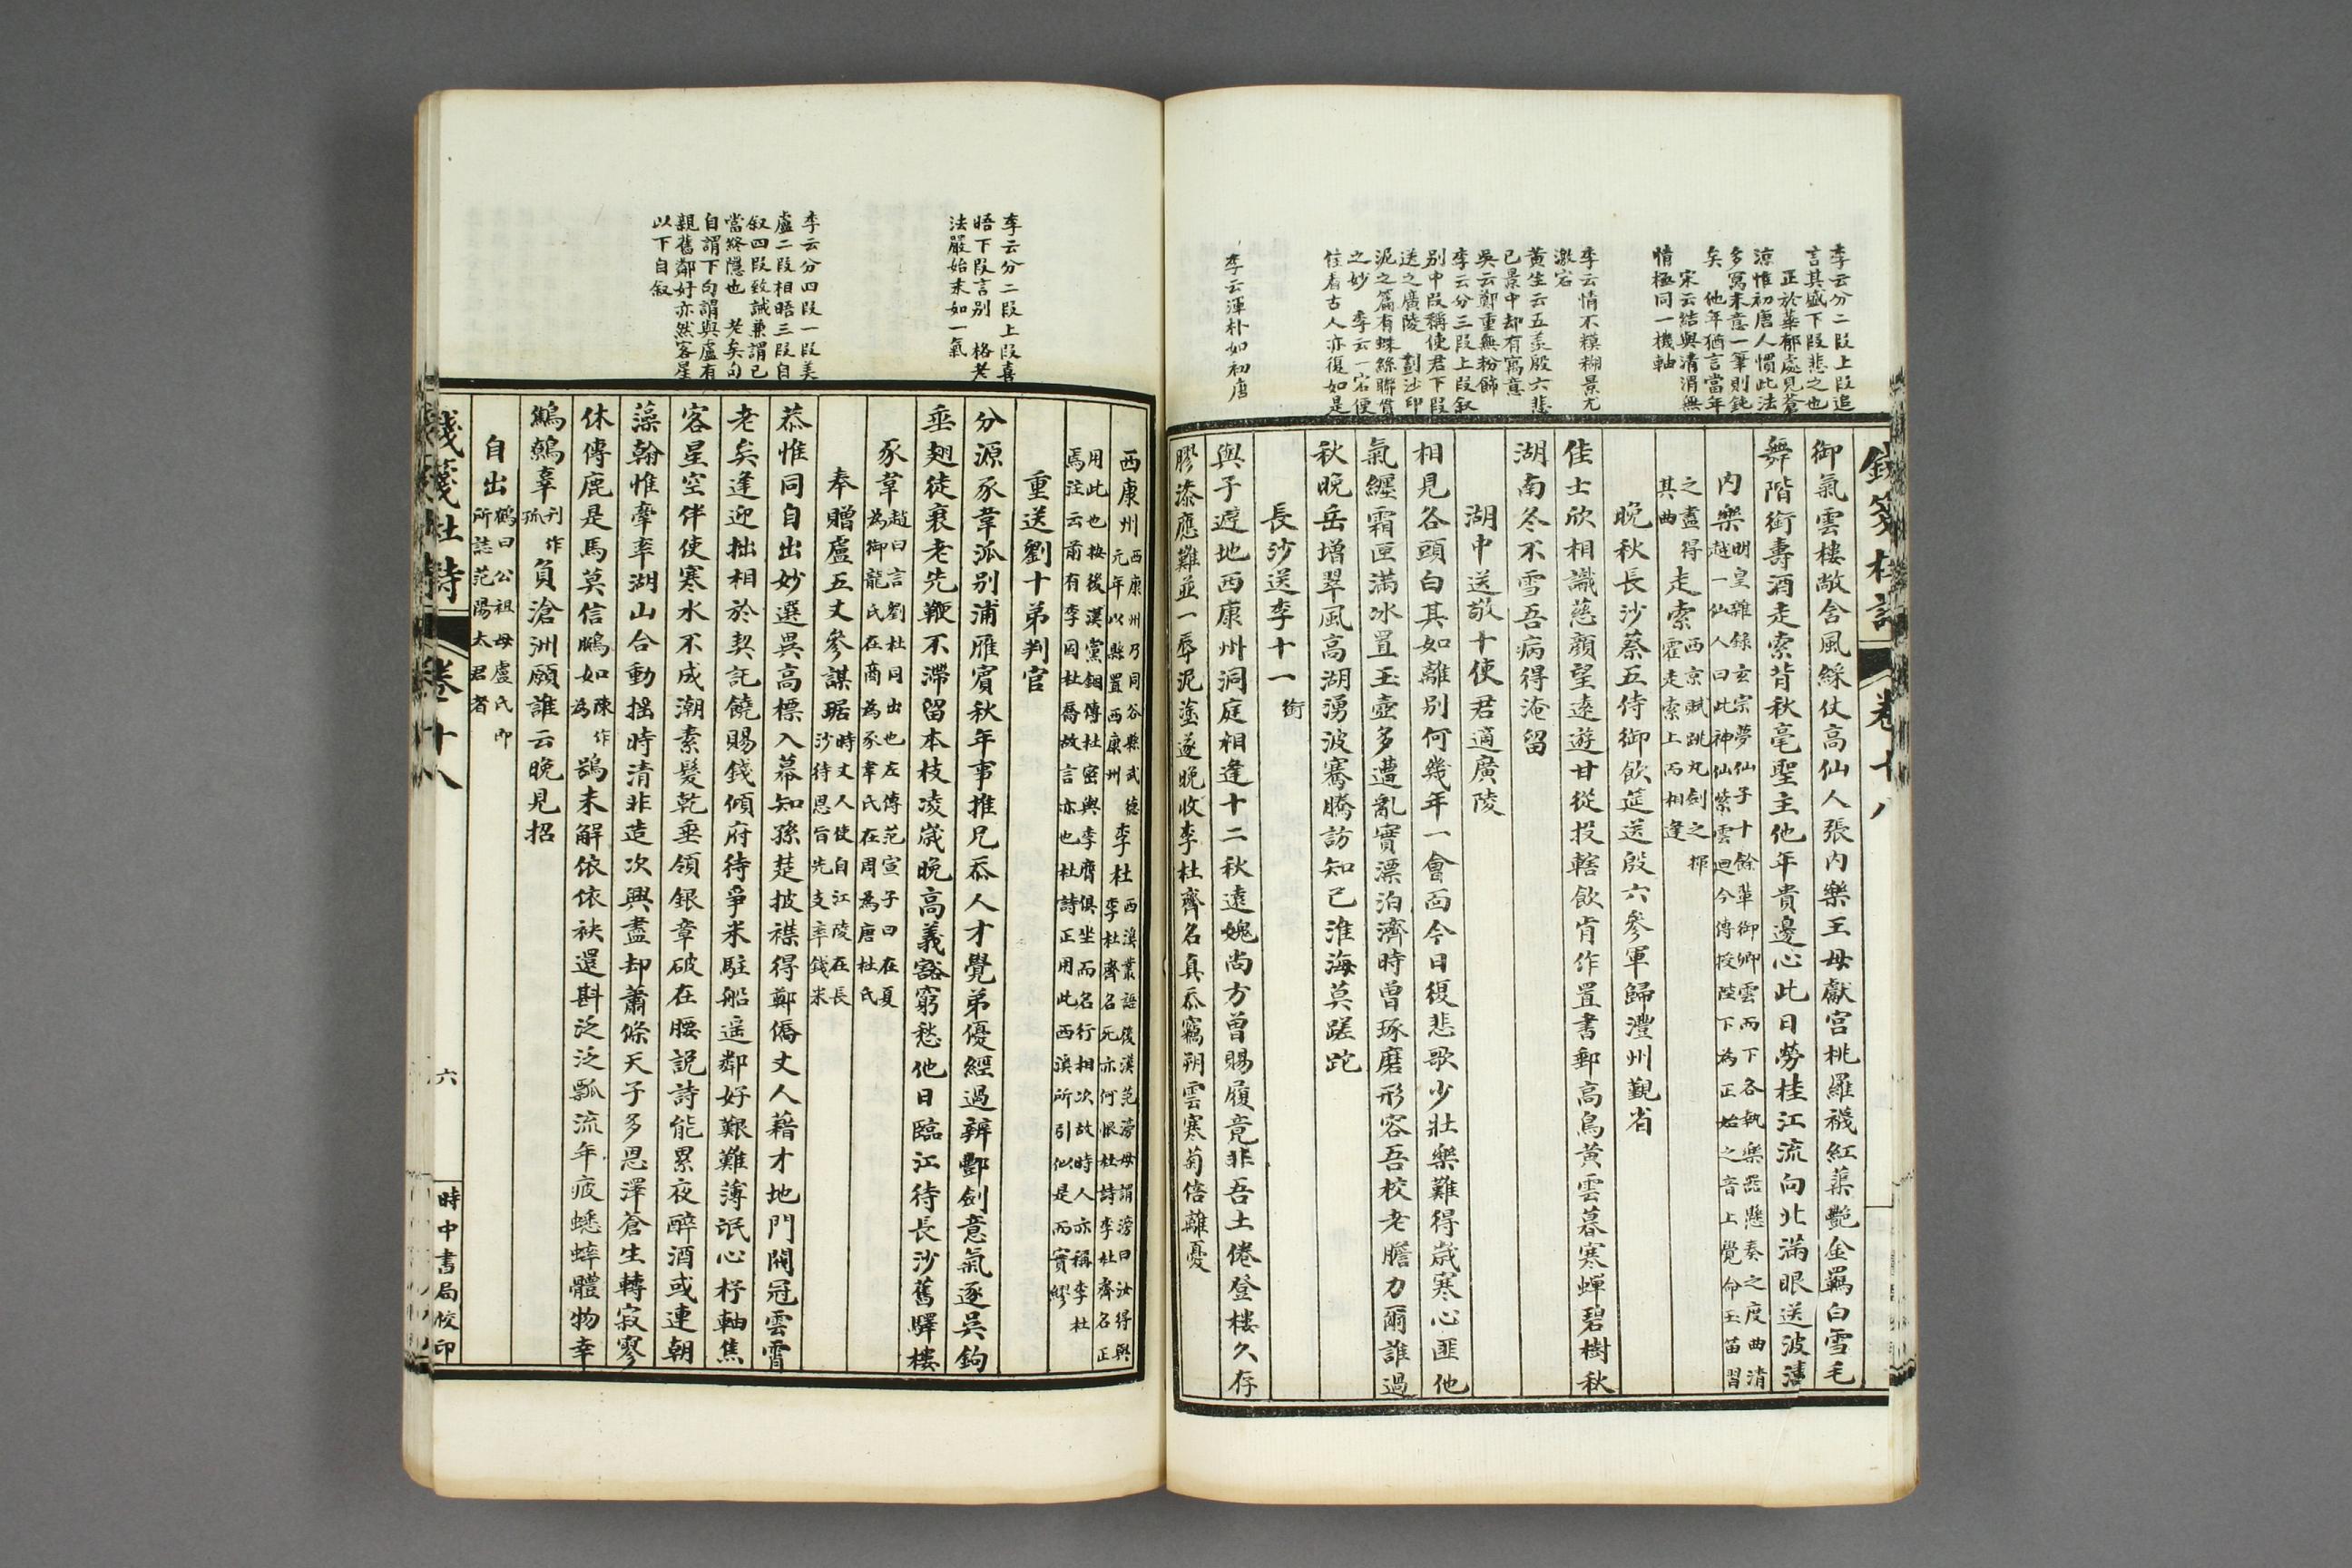 李云分二段上段追
言其盛下段悲之也
正於華郁處見蒼
涼惟初唐人慣此法
多寫末意一筆則鈍
矣 他年猶言當年
宋云結與清渭無
情極同一機軸
李云情不模糊景尤
激宕
黃生云五羨殷六悲
已景中却有寓意
吳云鄭重無粉飾
李云分三段上段叙
別中段稱使君下段
送之廣陵 劃沙印
泥之篇有蛛絲聯貫
之妙 李云一宕便
佳看古人亦復如是
李云渾朴如初唐
錢箋杜詩 卷十八
御氣雲樓敞含風綵仗高仙人張内樂王母獻宫桃羅襪紅蕖艷金羈白雪毛
舞階銜壽酒走索背秋毫聖主他年貴邊心此日勞桂江流向北滿眼送波濤
内樂明皇雜錄玄宗夢仙子十餘輩御卿雲而下各執樂器懸奏之度曲清
越一仙人曰此神仙紫雲迴今傳授陛下為正始之音上覺命玉笛習
之盡得
其曲
走索西京賦跳丸劍之揮
霍走索上而相逢
晚秋長沙蔡五侍御飲筵送殷六參軍歸澧州覲省
佳士欣相識慈顏望遠遊甘從投轄飲肯作置書郵高鳥黄雲暮寒蟬碧樹秋
湖南冬不雪吾病得淹留
湖中送敬十使君適廣陵
相見各頭白其如離別何幾年一會面今日復悲歌少壯樂難得歲寒心匪他
氣纏霜匣滿冰置玉壺多遭亂實漂泊濟時曾琢磨形容吾校老膽力爾誰過
秋晚岳增翠風高湖湧波騫騰訪知己淮海莫蹉跎
長沙送李十一銜
與子避地西康州洞庭相逢十二秋遠媿尚方曾賜履竟非吾土倦登樓久存
膠漆應難並一辱泥塗遂晚收李杜齊名真忝竊朔雲寒菊倍離憂
李云分二段上段喜
晤下段言別 格老
法嚴始末如一氣
李云分四段一段美
盧二段相晤三段自
叙四段致誠兼謂已
當終隱也 老矣句
自謂下句謂與盧有
親舊鄰好亦然客星
以下自叙
西康州西康州乃同谷縣武德
元年以縣置西康州
李杜西溪叢語後漢范滂母謂滂曰汝得與
李杜齊名死亦何恨杜詩李杜齊名正
用此也按後漢黨錮傳杜密與李膺俱坐而名行相次故時人亦稱李杜
焉注云前有李固杜喬故言亦也杜詩正用此西溪所引似是而實繆
重送劉十弟判官
分源豕韋派別浦雁賓秋年事推兄忝人才覺弟優經過辨酆劍意氣逐吳鉤
垂翅徒衰老先鞭不滯留本枝凌歲晚高義豁窮愁他日臨江待長沙舊驛樓
豕韋趙曰言劉杜同出也左傳范宣子曰在夏
為御龍氏在商為豕韋氏在周為唐杜氏
奉贈盧五丈參謀琚時丈人使自江陵在長
沙待恩旨先支率錢米
恭惟同自出妙選異高標入幕知孫楚披襟得鄭僑丈人藉才地門閥冠雲霄
老矣逢迎拙相於契託饒賜錢傾府待爭米駐船遥鄰好艱難薄氓心杼軸焦
客星空伴使寒水不成潮素髮乾垂領銀章破在腰説詩能累夜醉酒或連朝
藻翰惟牽率湖山合動揺時清非造次興盡却蕭條天子多恩澤蒼生轉寂寥
休傳鹿是馬莫信鵬如陳作
為鴞未解依依袂還斟泛泛瓢流年疲蟋蟀體物幸
鷦鷯辜刊作
孤負滄洲願誰云晚見招
自出鶴曰公祖母盧氏即
所誌范陽太君者
錢箋杜詩 卷十八 六 時中書局校印